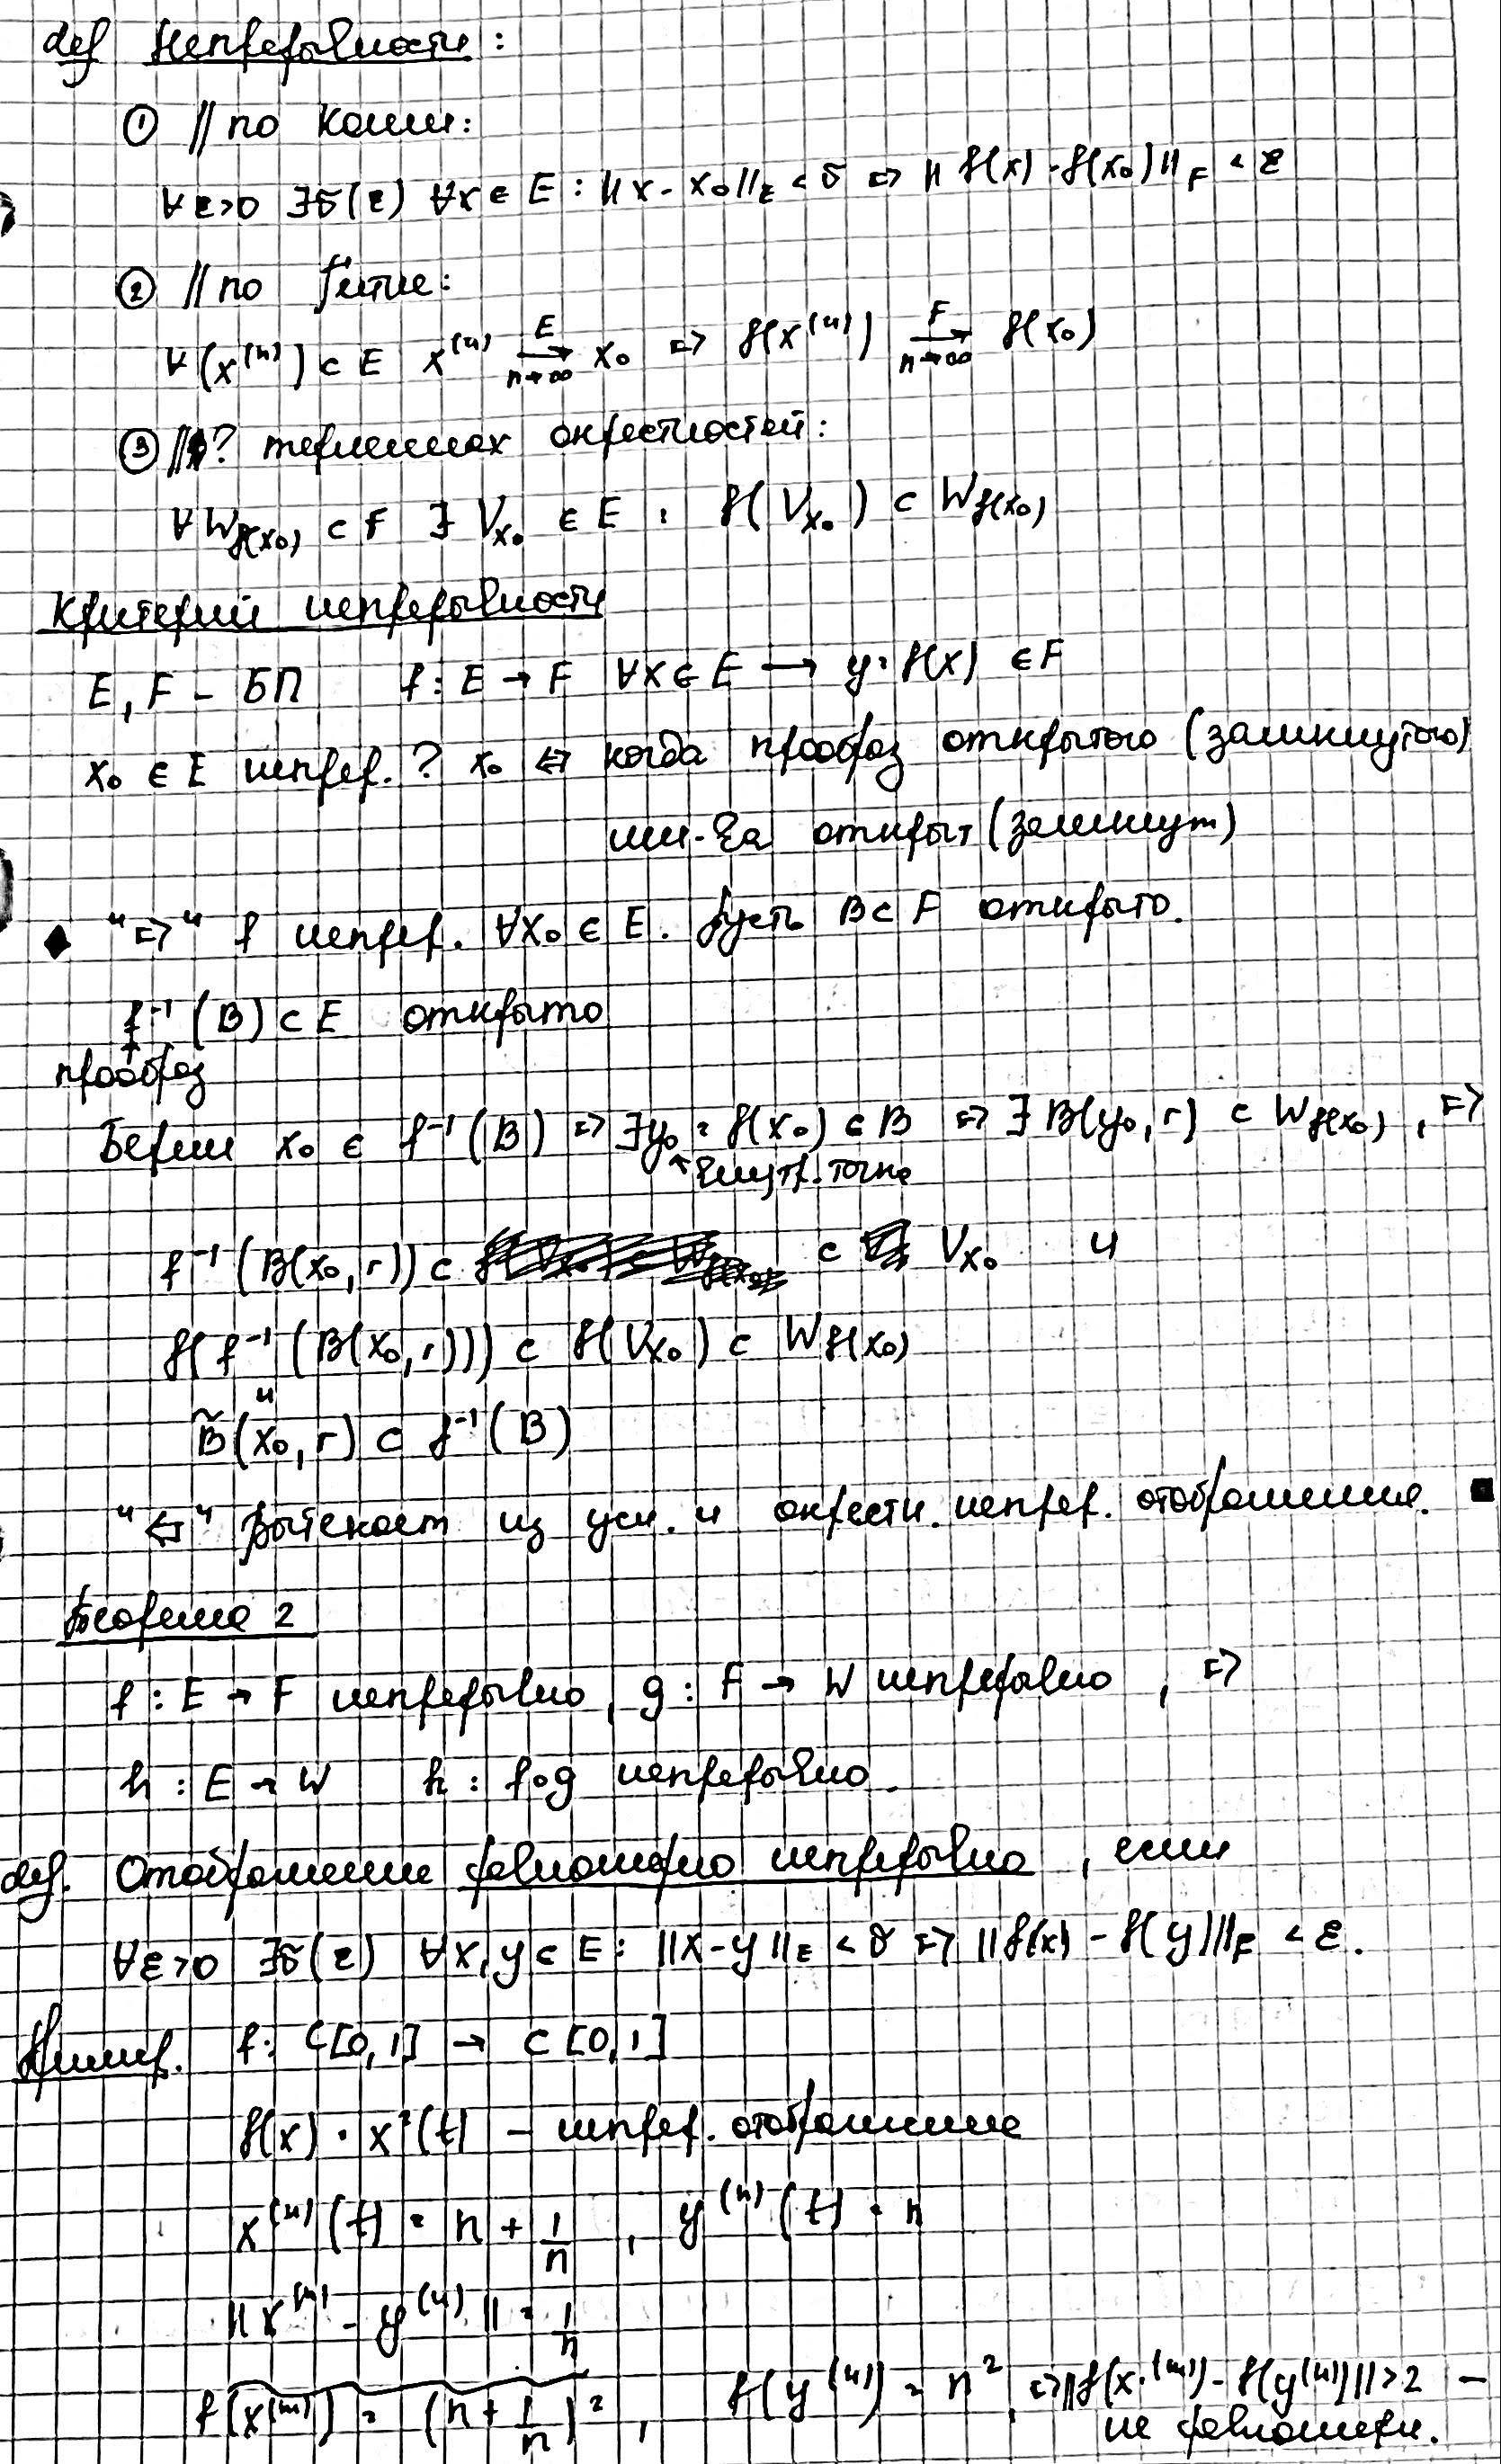 def Непрерывности:
① // по Коши:
∀ε>0 ∃δ(ε) ∀x∈E : ||x-x₀||_E < δ ⇒ || f(x) - f(x₀) ||_F < ε
② // по Гейне:
∀(x⁽ⁿ⁾) ⊂ E x⁽ⁿ⁾ →^E_{n→∞} x₀ ⇒ f(x⁽ⁿ⁾) →^F_{n→∞} f(x₀)
③ // ? терминах окрестностей:
∀W_{f(x₀)} ⊂ F ∃ V_{x₀} ∈ E : f(V_{x₀}) ⊂ W_{f(x₀)}
Критерий непрерывности
E, F - БП f: E → F ∀x∈E → y = f(x) ∈F
x₀ ∈ E непрер. ? x₀ ⇔ когда прообраз открытого (замкнутого)
мн-ва открыт (замкнут)
◆ "⇒" f непрер. ∀x₀ ∈ E. Пусть B⊂F открыто.
f⁻¹(B) ⊂ E открыто
↑
прообраз
Берем x₀ ∈ f⁻¹(B) ⇒ ∃y₀ = f(x₀) ∈ B ⇒ ∃ B(y₀, r) ⊂ W_{f(x₀)}, ⇒
↑ внутр. точка
f⁻¹(B(x₀, r)) ⊂ ⊂ V_{x₀} и
f(f⁻¹(B(x₀, r))) ⊂ f(V_{x₀}) ⊂ W_{f(x₀)}
и
B̃(x₀, r) ⊂ f⁻¹(B)
"⇐" вытекает из усл. и окрестн. непрер. отображения. ■
Теорема 2
f : E → F непрерывно, g : F → W непрерывно, ⇒
h : E → W h = f∘g непрерывно.
def. Отображение равномерно непрерывно, если
∀ε>0 ∃δ(ε) ∀x,y⊂E : ||x-y||_E < δ ⇒ ||f(x) - f(y)||_F < ε.
Пример. f: C[0,1] → C[0,1]
f(x) = x²(t) - непрер. отображение
x⁽ⁿ⁾(t) = n + 1/n , y⁽ⁿ⁾(t) = n
||x⁽ⁿ⁾ - y⁽ⁿ⁾|| = 1/n
f(x⁽ⁿ⁾) = (n + 1/n)², f(y⁽ⁿ⁾) = n², ⇒ ||f(x⁽ⁿ⁾) - f(y⁽ⁿ⁾)|| > 2 -
не равномерн.